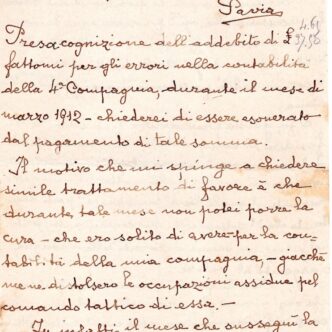 Pavia
Presa cognizione dell'addebito di £
fattomi per gli errori nella contabilità
della 4ª Compagnia, durante il mese di
marzo 1912 - chiederei di essere esonerato
dal pagamento di tale somma.
Il motivo che mi spinge a chiedere
simile trattamento di favore è che
durante, tale mese non potei porre la
cura - che ero solito di avere - per la con-
tabilità della mia compagnia, - giacchè
me ne distolsero le occupazioni assidue pel
comando tattico di essa. -
In infatti il mese che susseguì la